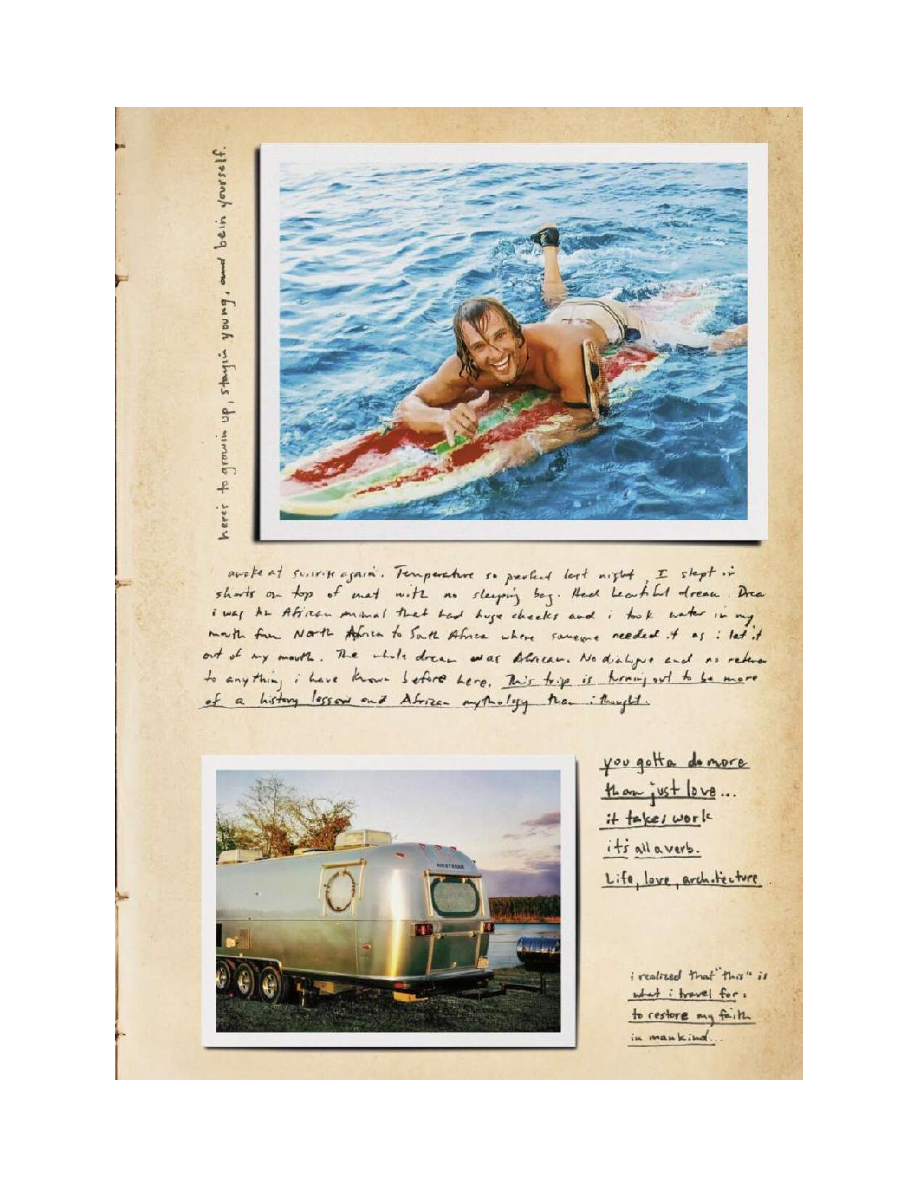 here's to growin up, stayin young, and bein yourself.
awoke at sunrise again. Temperature so perfect last night, I slept in
shorts on top of mat with no sleeping bag. Had beautiful dream. Drea
i was an African animal that had huge cheeks and i took water in my
mouth from North Africa to South Africa where someone needed it as i let it
out of my mouth. The whole dream was African. No dialogue and no
to anything i have known before here. This trip is turning out to be more
of a history lesson and African mythology than i thought.
you gotta do more
than just love...
it takes work
it's all a verb.
Life, love, architecture
i realized that "this" is
what i travel for:
to restore my faith
in mankind...